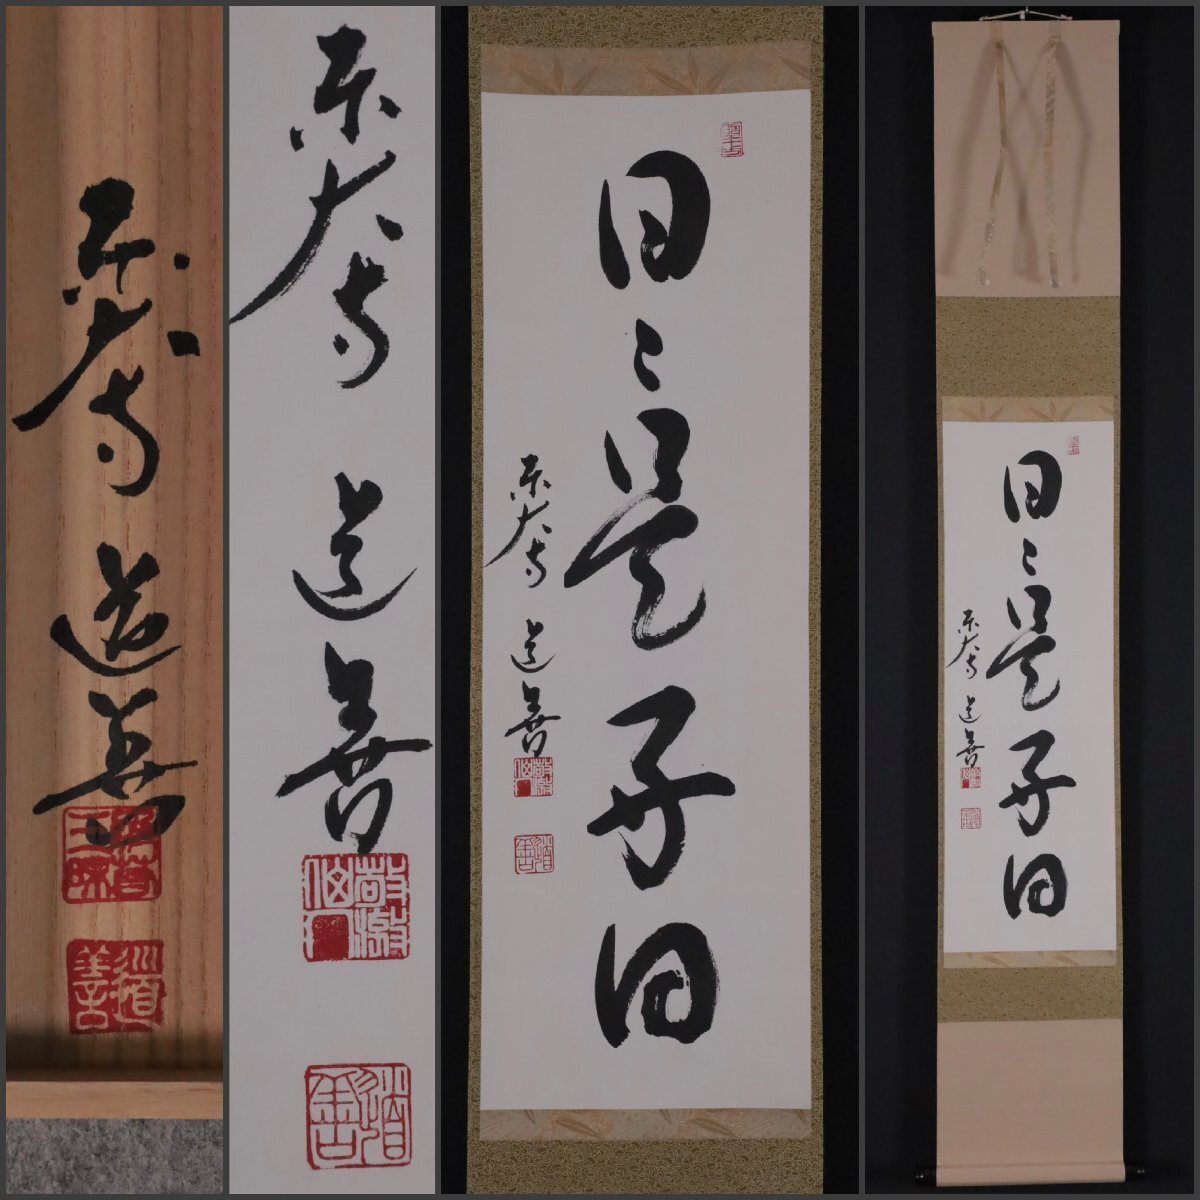 東大寺 道善
道善
東大寺 道善
道善
日々是好日
東大寺 道善
道善
日々是好日
東大寺 道善